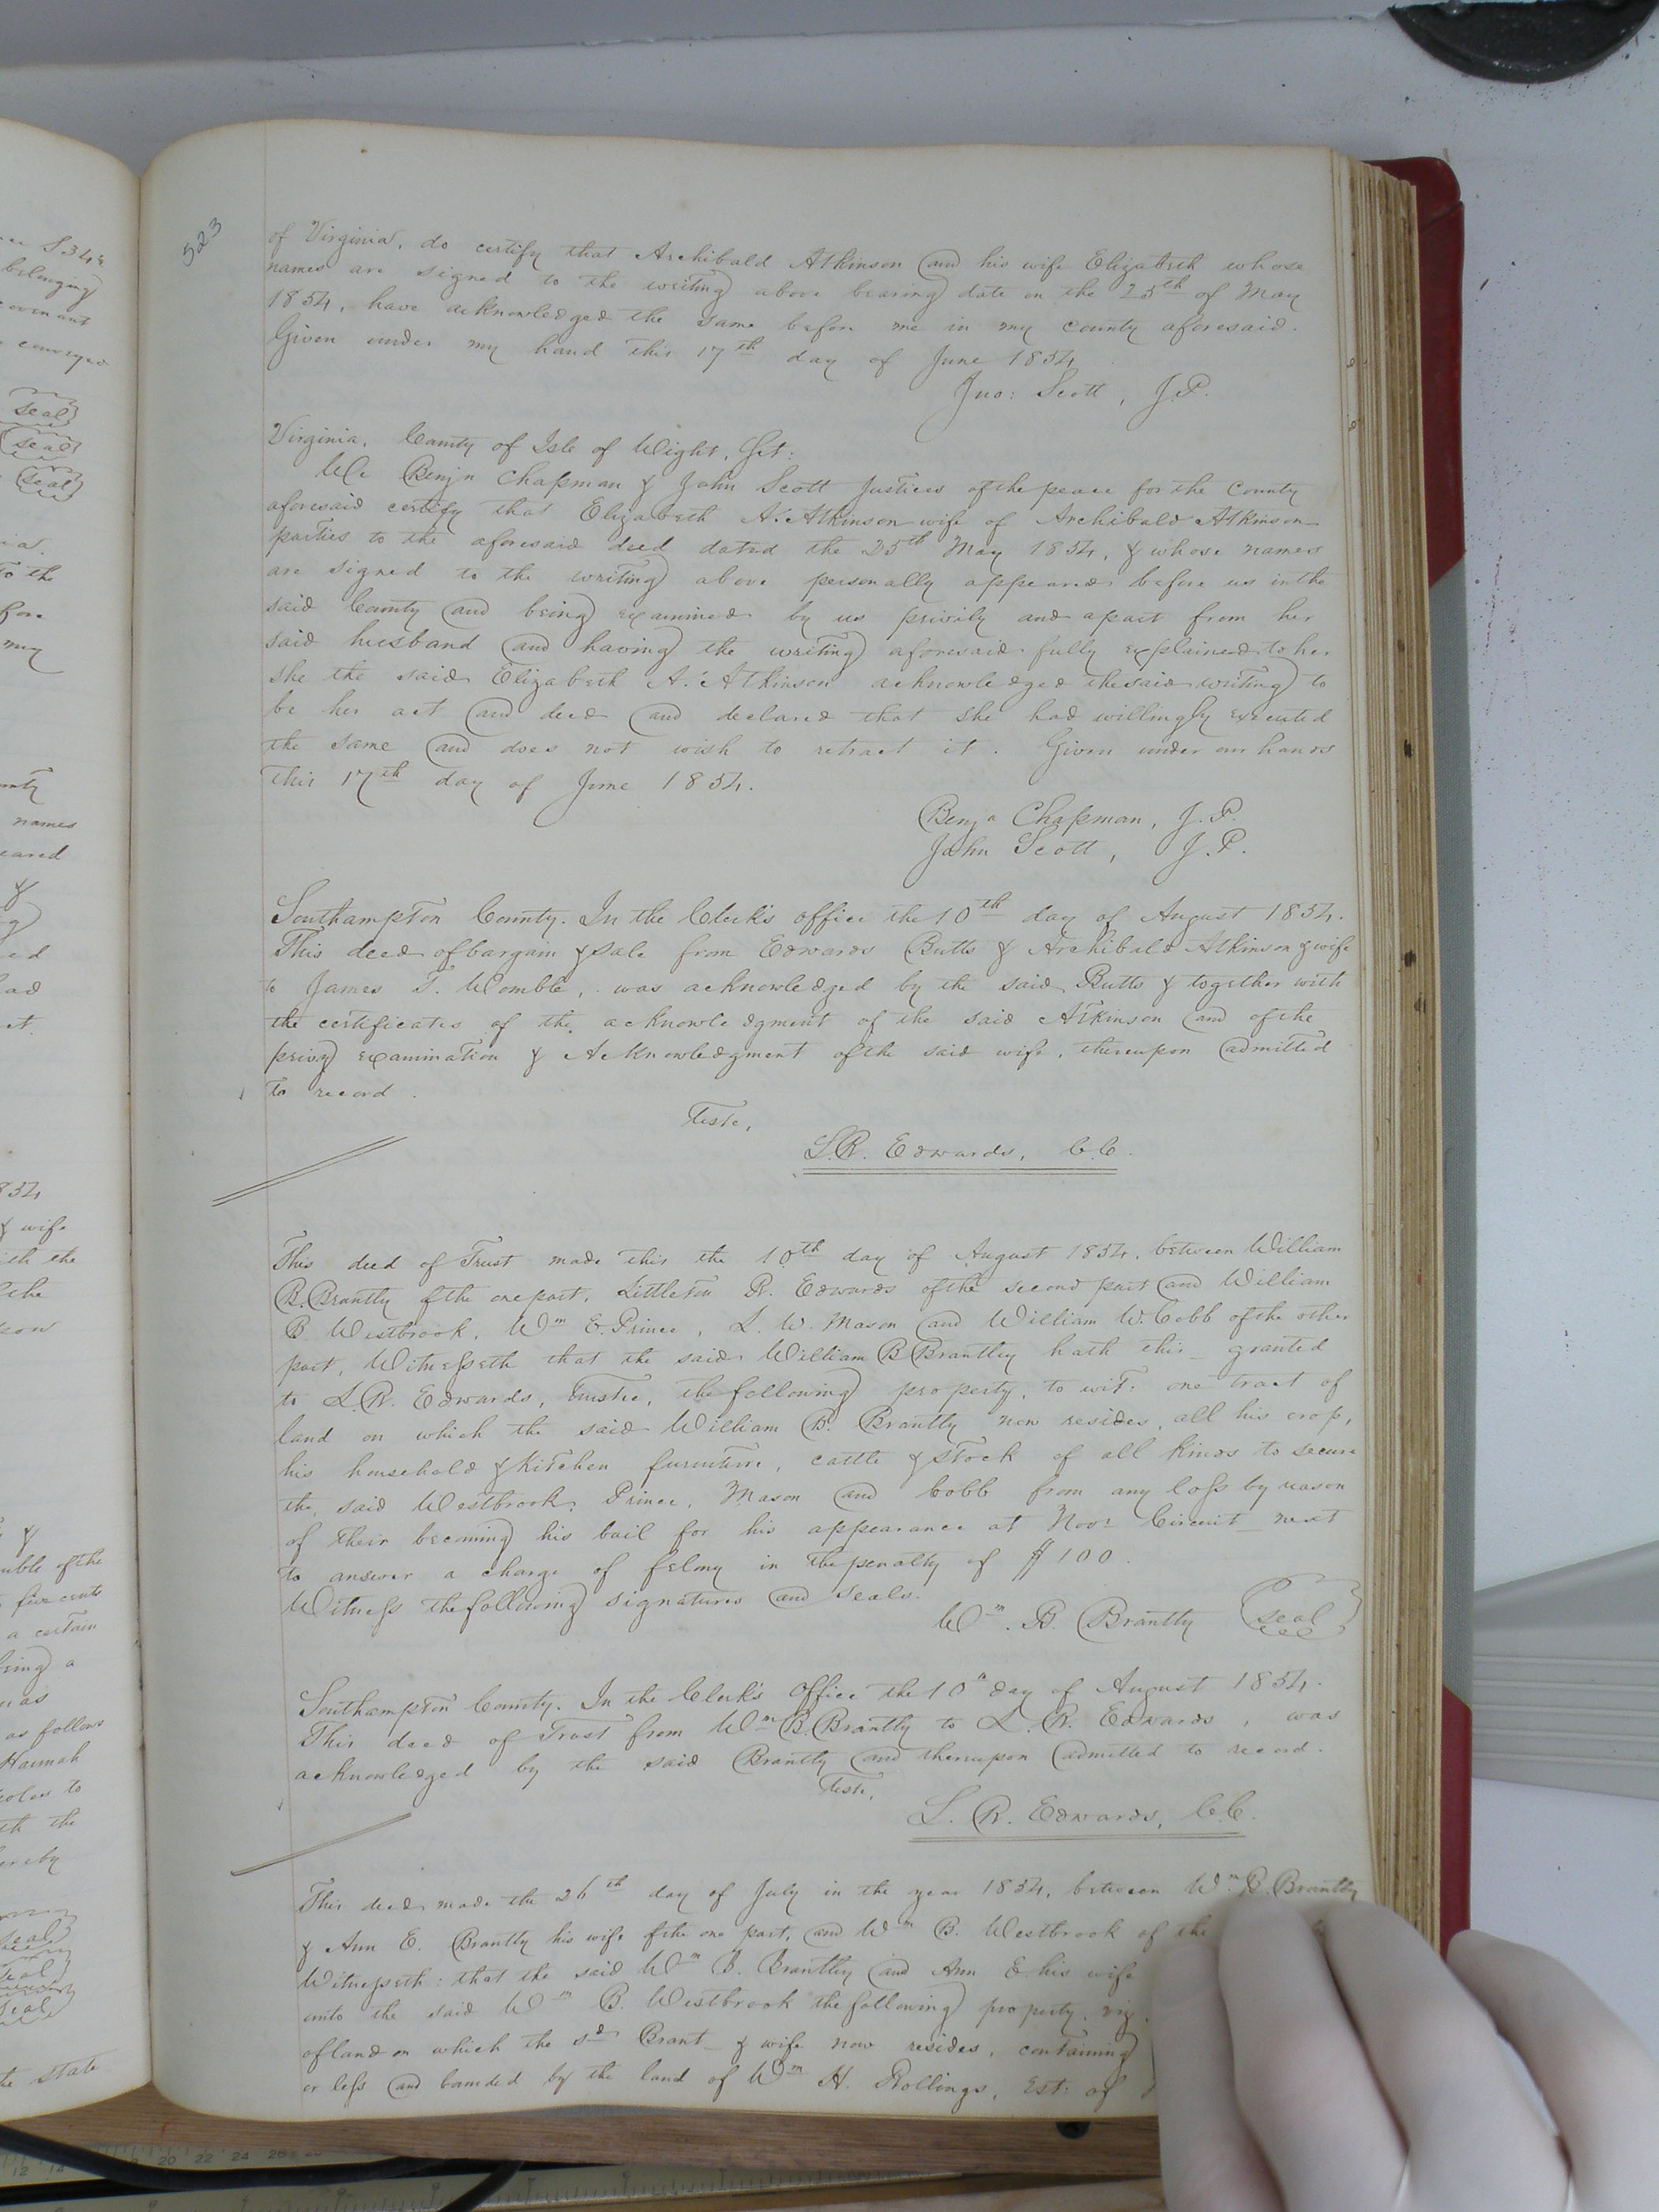 523
of Virginia, do certify that Archibald Atkinson and his wife Elizabeth whose
names are signed to the writing above bearing date on the 25th of May
1854, have acknowledged the same before me in my county aforesaid.
Given under my hand this 17th day of June 1854
Jno: Scott, J.P.
Virginia, County of Isle of Wight, Sct:
We Benjn Chapman & John Scott Justices of the peace for the County
aforesaid certify that Elizabeth A. Atkinson wife of Archibald Atkinson
parties to the aforesaid deed dated the 25th May 1854, & whose names
are signed to the writing above personally appeared before us in the
said County and being examined by us privily and apart from her
said husband and having the writing aforesaid fully explained to her
she the said Elizabeth A. Atkinson acknowledged the said writing to
be her act and deed and declared that she had willingly executed
the same and does not wish to retract it. Given under our hands
this 17th day of June 1854.
Benja Chapman, J.P.
John Scott, J.P.
Southampton County. In the Clerk's office the 10th day of August 1854.
This deed of bargain & sale from Edwards Butts & Archibald Atkinson & wife
to James T. Womble, was acknowledged by the said Butts & together with
the certificates of the acknowledgment of the said Atkinson and of the
privy examination & Acknowledgment of the said wife, thereupon admitted
to record.
Teste,
L.R. Edwards, C.C.
This deed of Trust made this the 10th day of August 1854, between William
B. Brantly of the one part, Littleton R. Edwards of the second part and William
B Westbrook, Wm E. Prince, L. W. Mason and William W. Cobb of the other
part, Witnesseth that the said William B Brantley hath this granted
to L.R. Edwards, trustee, the following property, to wit: one tract of
land on which the said William B. Brantly now resides, all his crop,
his household & kitchen furniture, cattle & stock of all kinds to secure
the said Westbrook, Prince, Mason and Cobb from any loss by reason
of their becoming his bail for his appearance at Novr Circuit next
to answer a charge of felony in the penalty of $100.
Witness the following signatures and seals.
Wm. B. Brantly seal
Southampton County. In the Clerk's Office the 10th day of August 1854.
This deed of Trust from Wm B. Brantly to L. R. Edwards, was
acknowledged by the said Brantly and thereupon admitted to record.
Teste,
L. R. Edwards, C.C.
This deed made the 26th day of July in the year 1854, between Wm B. Brantly
& Ann E. Brantly his wife of the one part, and Wm B. Westbrook of the
Witnesseth: that the said Wm B. Brantley and Ann E his wife
unto the said Wm B. Westbrook the following property, viz.
of land on which the sd Brant & wife now resides, containing
or less and bounded by the land of Wm H. Rollings, Est: of